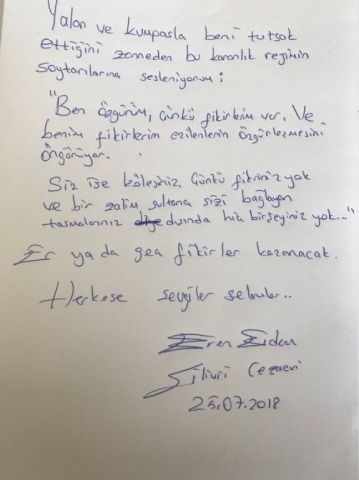 Yalan ve kumpasla beni tutsak
ettiğini zanneden bu karanlık rejimin
soytarılarına sesleniyorum;
"Ben özgürüm, çünkü fikirlerim var. Ve
benim fikirlerim ezilenlerin özgürleşmesini
öngörüyor.
Siz ise kölesiniz. Çünkü fikriniz yok
ve bir zalim sultana sizi bağlayan
tasmalarınız dışında hiç birşeyiniz yok..."
Er ya da geç fikirler kazanacak.
Herkese sevgiler selamlar..
Eren Erdem
Silivri Cezaevi
25.07.2018